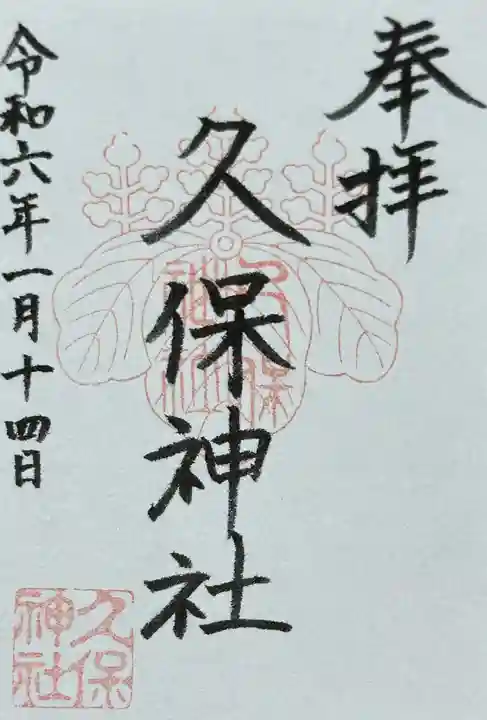 奉拝
久保神社
令和六年一月十四日
久保
神社